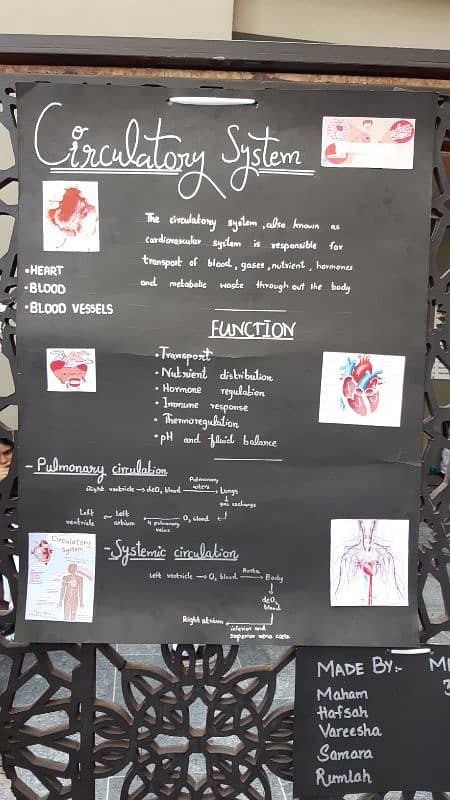 Circulatory System
The circulatory system, also known as
cardiovascular system is responsible for
transport of blood, gases, nutrient, hormones
and metabolic waste through out the body
• HEART
• BLOOD
• BLOOD VESSELS
FUNCTION
• Transport
• Nutrient distribution
• Hormone regulation
• Immune response
• Thermoregulation
• pH and fluid balance
- Pulmonary circulation
Right ventricle → deO₂ blood Pulmonary artery → Lungs
↓ gas exchange
Left ventricle ← Left atrium ← 4 pulmonary veins O₂ blood ↵
- Systemic circulation
Left ventricle → O₂ blood Aorta → Body
↓
deO₂ blood
Right atrium ← inferior and superior vena cava
Circulatory
System
MADE By:- M
Maham
Hafsah
Vareesha
Samara
Rumlah